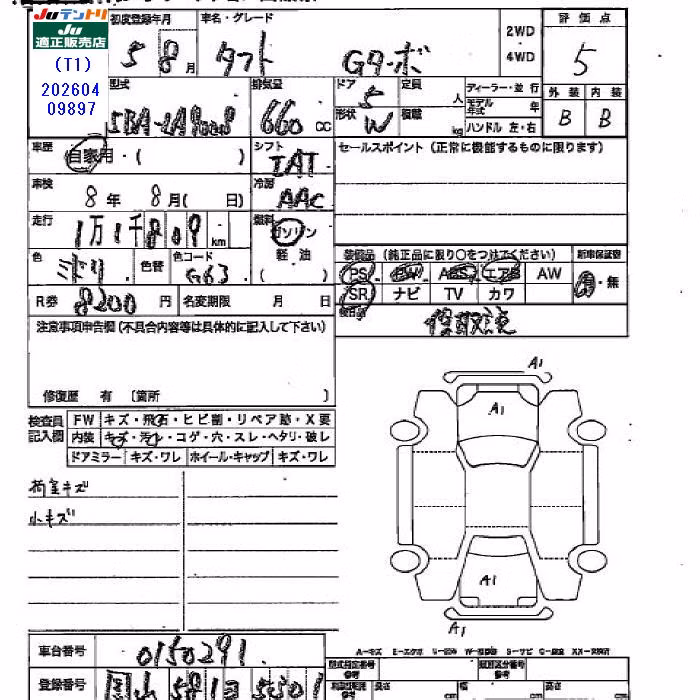 JUテントリ
JU適正販売店
(T1)
202604
09897
初度登録年月 車名・グレード 2WD・4WD 評価点
5 8月 タフト Gターボ 5
型式 排気量 ドア 定員 人 ディーラー・並行 外装 内装
660cc 5 形状 W 積載 kg モデル年式 年 ハンドル 左・右 B B
車歴 自家用・( ) シフト IAT セールスポイント (正常に機能するものに限ります)
車検 8年 8月( 日) 冷房 AAC
走行 1万1千809km 燃料 ガソリン
軽油
( )
色 ミドリ 色替 色コード G63
装備品 (純正品に限り○をつけてください) 新車保証書
PS PW ABS エアB AW 有・無
SR ナビ TV カワ
R券 8200円 名変期限 月 日
後日品
注意事項申告欄 (不具合内容等は具体的に記入して下さい)
修復歴 有 〔箇所 〕
検査員記入欄 FW キズ・飛石・ヒビ割・リペア跡・X要
内装 キズ・汚れ・コゲ・穴・スレ・ヘタリ・破レ
ドアミラー キズ・ワレ ホイール・キャップ キズ・ワレ
荷室キズ
小キズ
A1
A1
A1
A1
車台番号 0150291
登録番号 岡山 581 5301
型式指定番号 類別区分番号
長さ cm 幅 cm 高さ